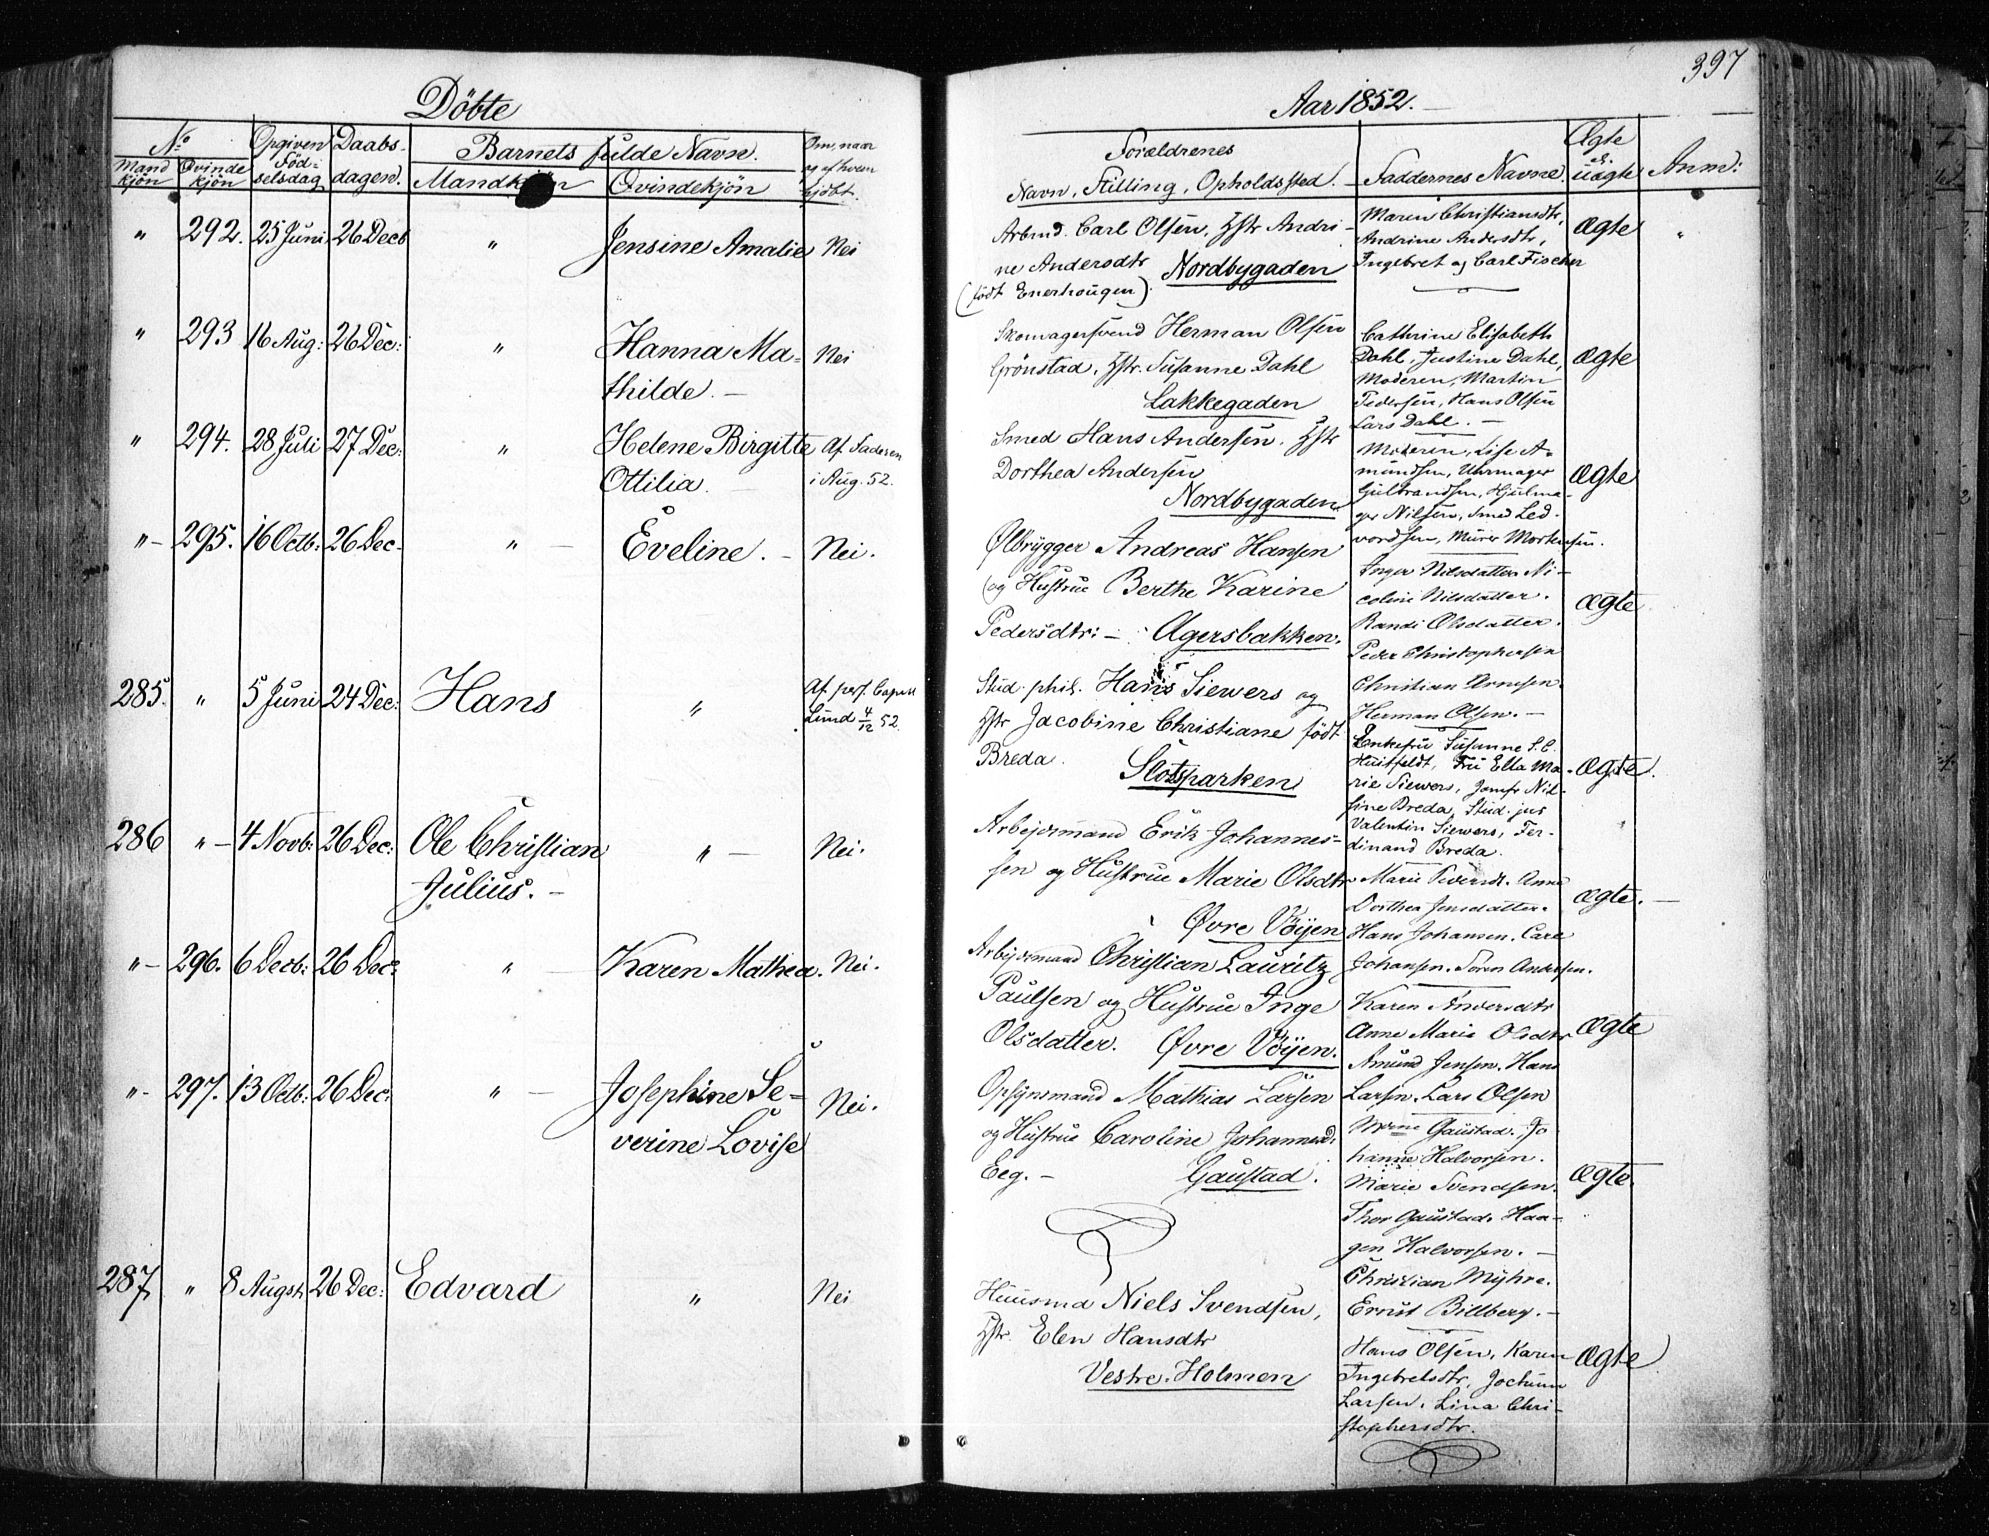 397
Döbte
Aar 1852.
No
Mandkjön
Qvindekjön
Opgiven Fødselsdag
Daabsdagen.
Barnets fulde Navn.
Mandkjön
Qvindekjön
Om, naar og af hvem hjdøbt.
Forældrenes
Navn, Stilling, Opholdssted.
Faddernes Navne
Ægte el. uægte
Anm:
" 292. 25 Juni 26 Decb " Jensine Amalie Nei
Arbmd. Carl Olsen, Hstr Andri-
ne Andersdtr Nordbygaden
(født Enerhougen).
Maren Christiansdtr,
Andrine Andersdtr,
Ingebret og Carl Fischer
Ægte "
" 293 16 Aug: 26 Dec: " Hanna Ma-
thilde. - Nei
Skomagersvend Herman Olsen
Grönstad, Hstr. Susanne Dahl
Lakkegaden
Cathrine Elisabeth
Dahl, Justine Dahl,
Moderen, Martin
Pedersen, Hans Olsen
Lars Dahl. -
Ægte
" 294. 28 Juli 27 Dec: " Helene Birgitte
Ottilia. - Af Faderen
i Aug. 52.
Smed Hans Andersen. Hstr
Dorthea Andersen
Nordbygaden
Moderen, Lise A-
mundsen, Uhrmager
Gulbrandsen, Hjulma-
ger Nilsen, Smed Led-
vordsen, Murer Mortensen.
Ægte
"- 295. 16 Octb: 26 Dec- " - Eveline. - Nei.
Ølbrygger Andreas Hansen
og Hustrue Berthe Karine
Pedersdtr: - Agersbakken.
Inger Nilsdatter. Ni-
coline Nilsdatter.
Randi Olsdatter.
Peder Christophersen
Christian Arnesen.
Herman Olsen. -
Ægte
285. " 5 Juni 24 Dec: Hans " Af pers. Capell
Lund 4/12 52.
Stud. phil. Hans Siewers og
Hstr Jacobine Christiane født
Breda. Slotsparken
Enkefru Susanne S. C.
Huitfeldt, Fru Ella Ma-
rie Siewers, Jomfr Nil-
sine Breda, Stud. jus
Valentin Siewers, Fer-
dinand Breda.
Ægte.
286 "- 4 Novb: 26 Dec: Ole Christian
Julius. - " - Nei.
Arbejdsmand Erik Johannes-
sen og Hustrue Marie Olsdtr
Øvre Vöyen
Marie Pedersdt. Anne
Dorthea Jensdatter.
Hans Johansen. Carl
Johansen. Søren Andersen.
Ægte. -
"- 296. 6 Decb: 26 Dec: " - Karen Mathea. Nei.
Arbejdsmand Christian Lauritz
Paulsen og Hustrue Inge
Olsdatter. Øvre Vöyen.
Karen Andersdtr
Anne Marie Olsdtr
Amund Jensen. Hans
Larsen. Lars Olsen
Ægte
"- 297. 13 Octb: 26 Dec: " - Josephine Se-
verine Lovise Nei.
Opsynsmand Mathias Larsen
og Hustrue Caroline Johannesd:
Eeg. - Gaustad.
Gaustad. Jo
hanne Halvorsen.
Marie Svendsen.
Thor Gaustad. Haa-
gen Halvorsen. -
Christian Myhre.
Ernst Billberg. -
Ægte.
287. " 8 Augst, 26 Dec: Edvard " Nei
Huusmd Niels Svendsen,
Hstr. Elen Hansdtr
Vestre. Holmen
Hans Olsen, Karen
Ingebretsdtr, Jochum
Larsen, Lina Chri-
stophersdtr.
Ægte